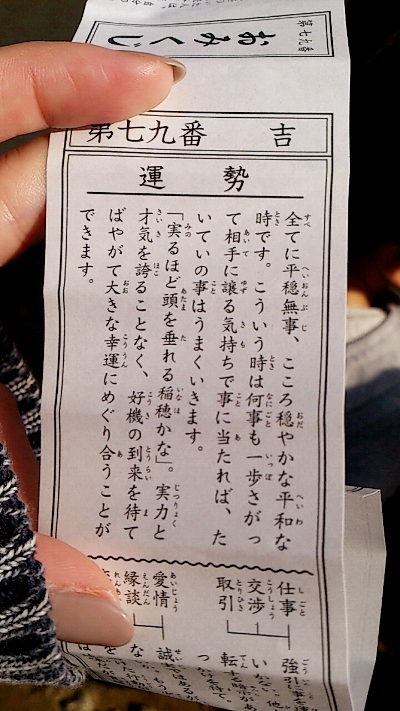 第七九番
おみくじ
第七九番 吉
運勢
全てに平穏無事、こころ穏やかな平和な
時です。こういう時は何事も一歩さがっ
て相手に譲る気持ちで事に当たれば、た
いていの事はうまくいきます。
「実るほど頭を垂れる稲穂かな」。実力と
才気を誇ることなく、好機の到来を待て
ばやがて大きな幸運にめぐり合うことが
できます。
仕事
交渉
取引
強引
愛情
縁談